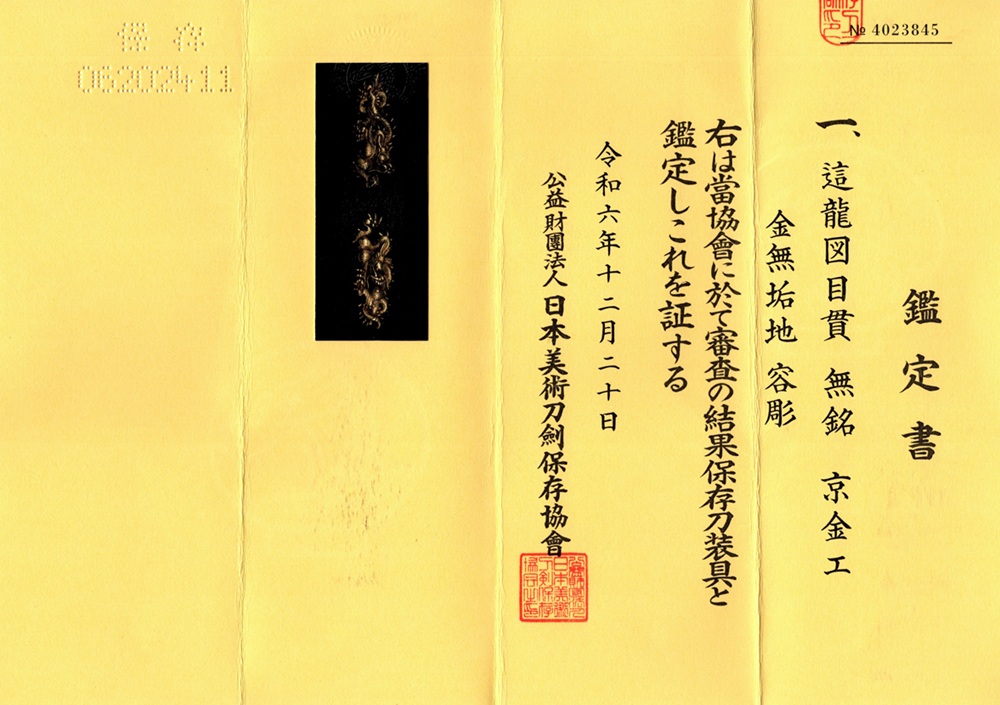 № 4023845
鑑定書
一、這龍図目貫 無銘 京金工
金無垢地 容彫
右は當協會に於て審査の結果保存刀装具と
鑑定しこれを証する
令和六年十二月二十日
公益財團法人 日本美術刀劍保存協會
保存
06202411